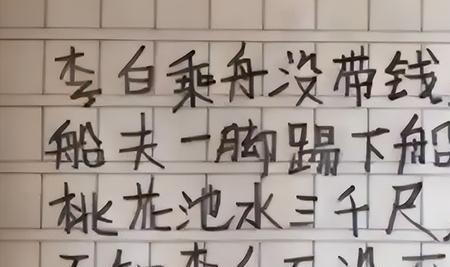 李白乘舟没带钱
船夫一脚踢下船
桃花池水三千尺